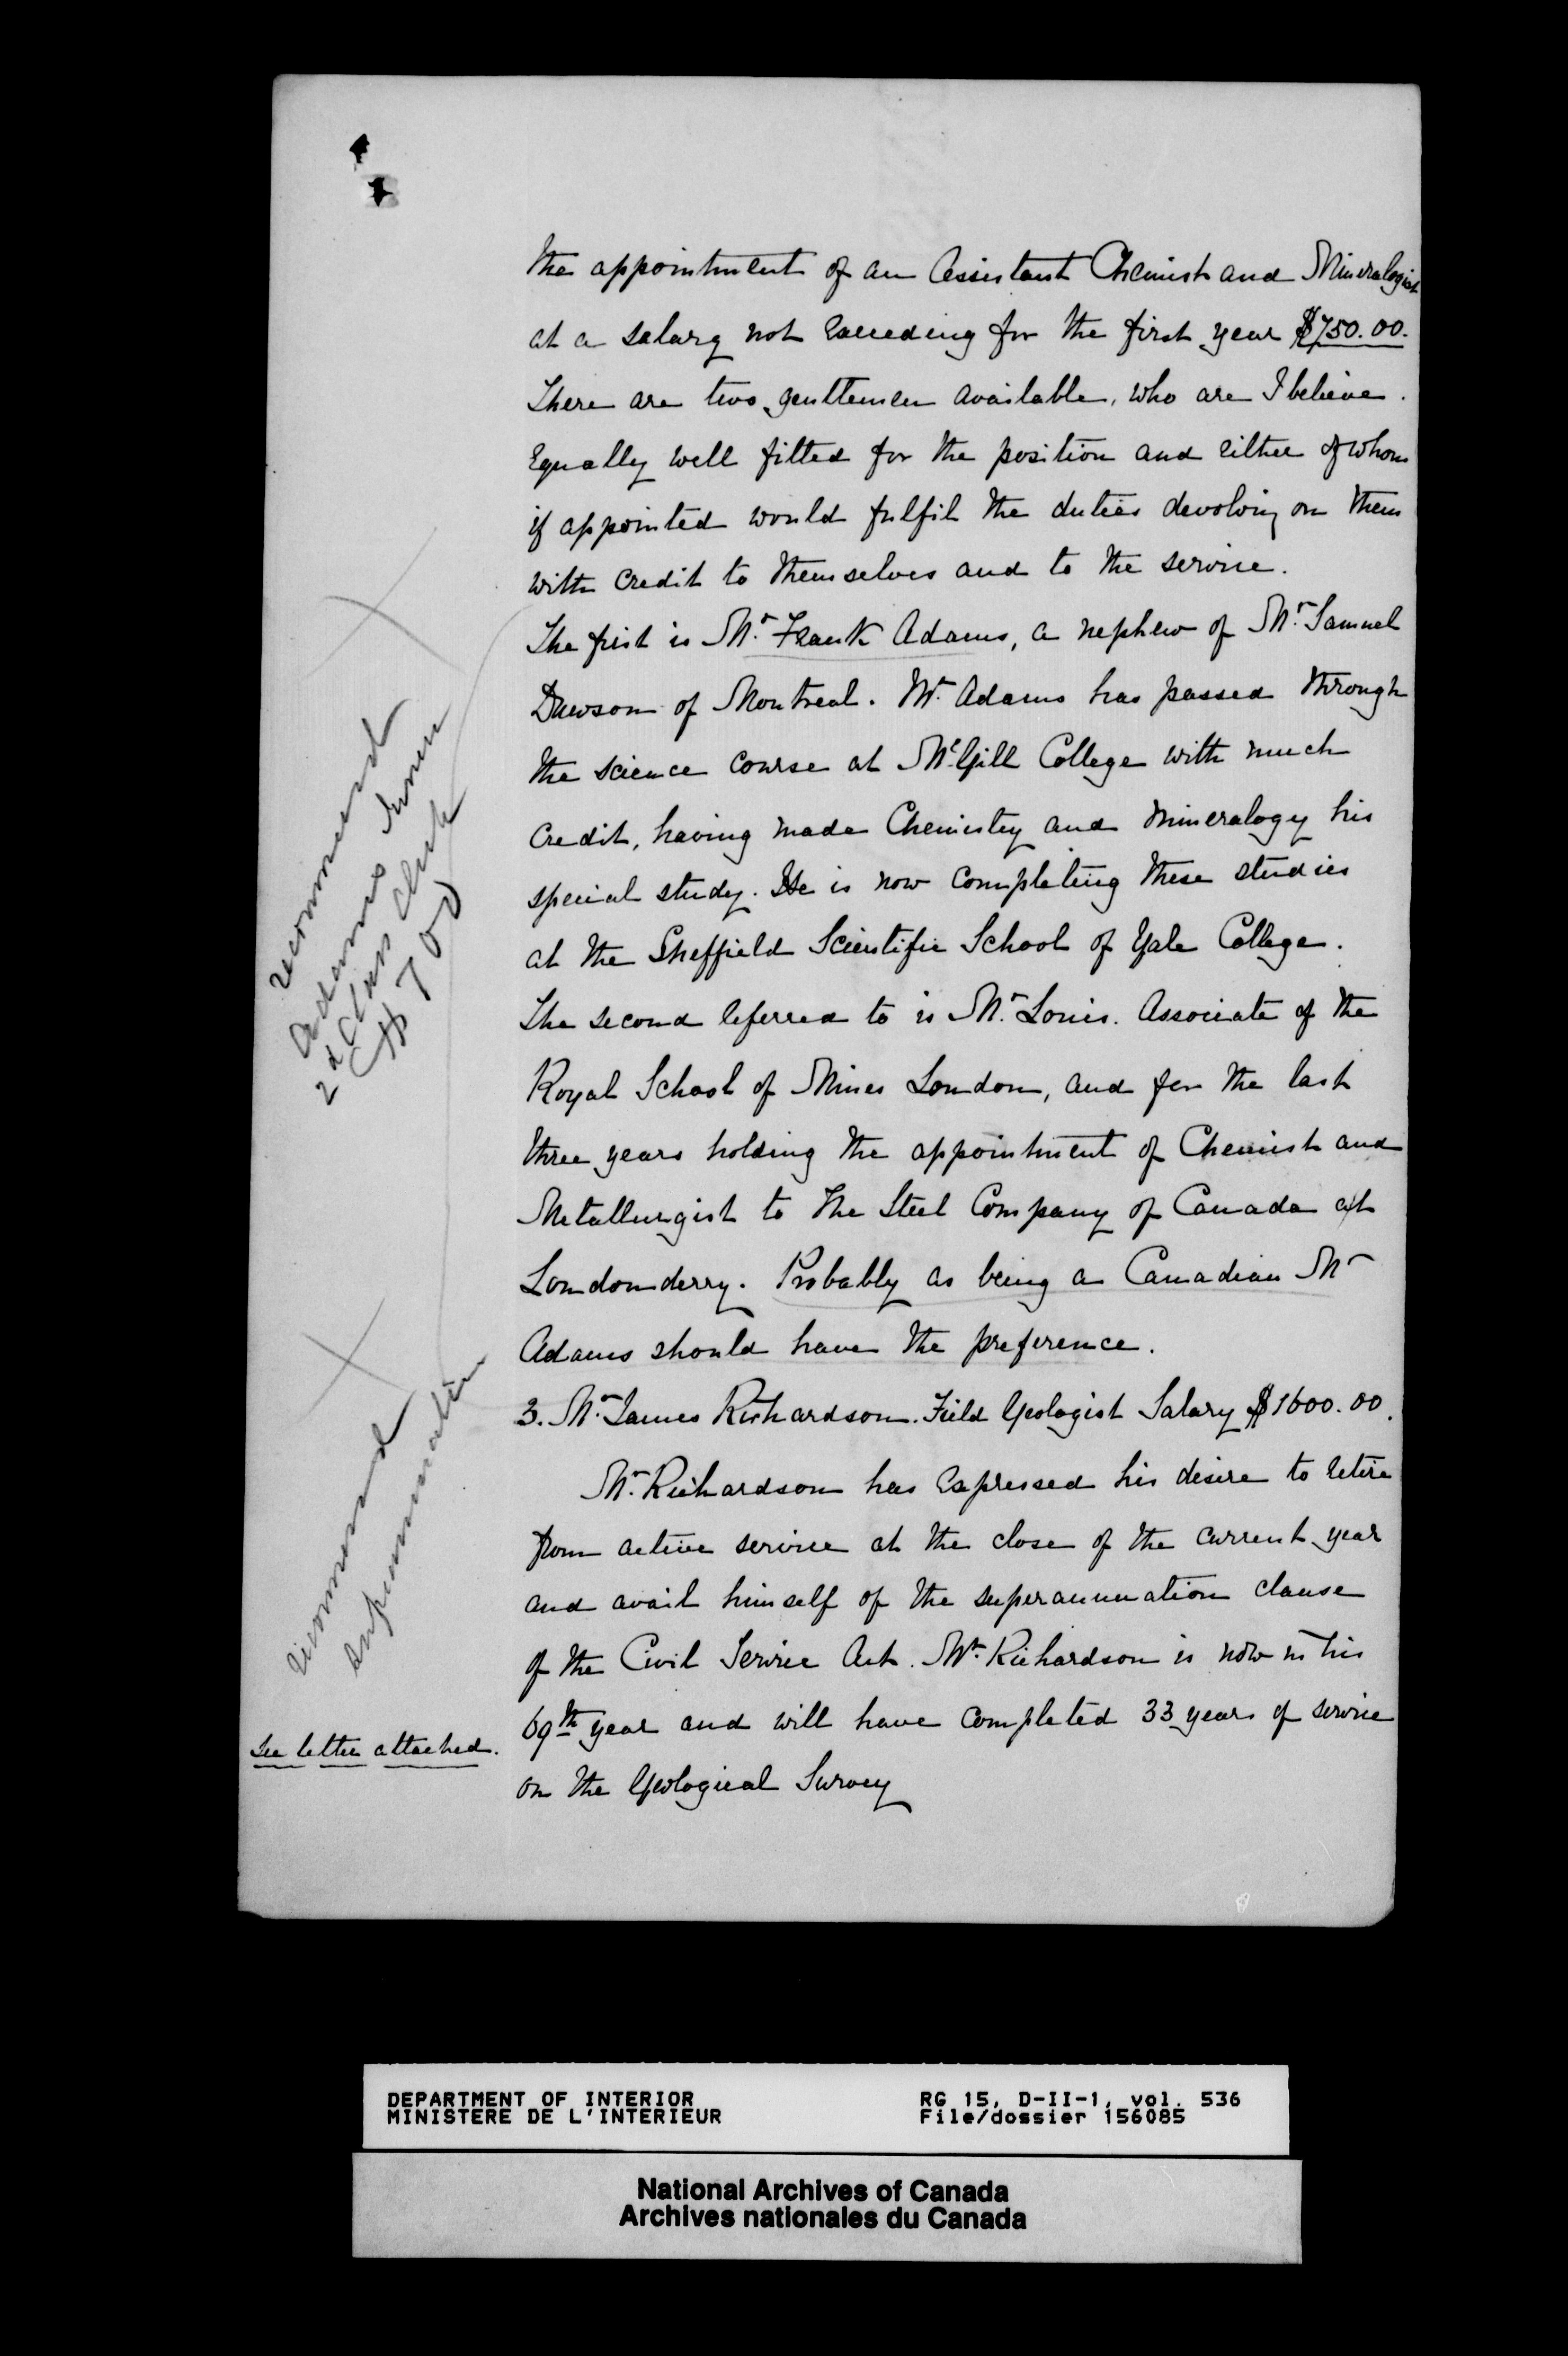 the appointment of an Assistant Chemist and Mineralogist
at a salary not Exceeding for the first year $750.00.
There are two gentlemen available, who are I believe.
Equally well fitted for the position and Either of whom
if appointed would fulfil the duties devolving on them
with credit to themselves and to the service.
The first is Mr. Frank Adams, a nephew of Mr. Samuel
Dawson of Montreal. Mr. Adams has passed through
the science course at McGill College with much
credit, having made Chemistry and Mineralogy his
special study. He is now completing these studies
at the Sheffield Scientific School of Yale College.
The second referred to is Mr. Louis. Associate of the
Royal School of Mines London, and for the last
three years holding the appointment of Chemist and
Metallurgist to the Steel Company of Canada at
Londonderry. Probably as being a Canadian Mr
Adams should have the preference.
3. Mr. James Richardson. Field Geologist Salary $1600.00.
Mr. Richardson has Expressed his desire to retire
from active service at the close of the current year
and avail himself of the superannuation clause
of the Civil Service Act. Mr. Richardson is now in his
69th year and will have completed 33 years of service
on the Geological Survey
recommend
Adams
2d Class Clerk
$700
recommend
superannuation
See letter attached.
DEPARTMENT OF INTERIOR
MINISTERE DE L'INTERIEUR
RG 15, D-II-1, vol. 536
File/dossier 156085
National Archives of Canada
Archives nationales du Canada